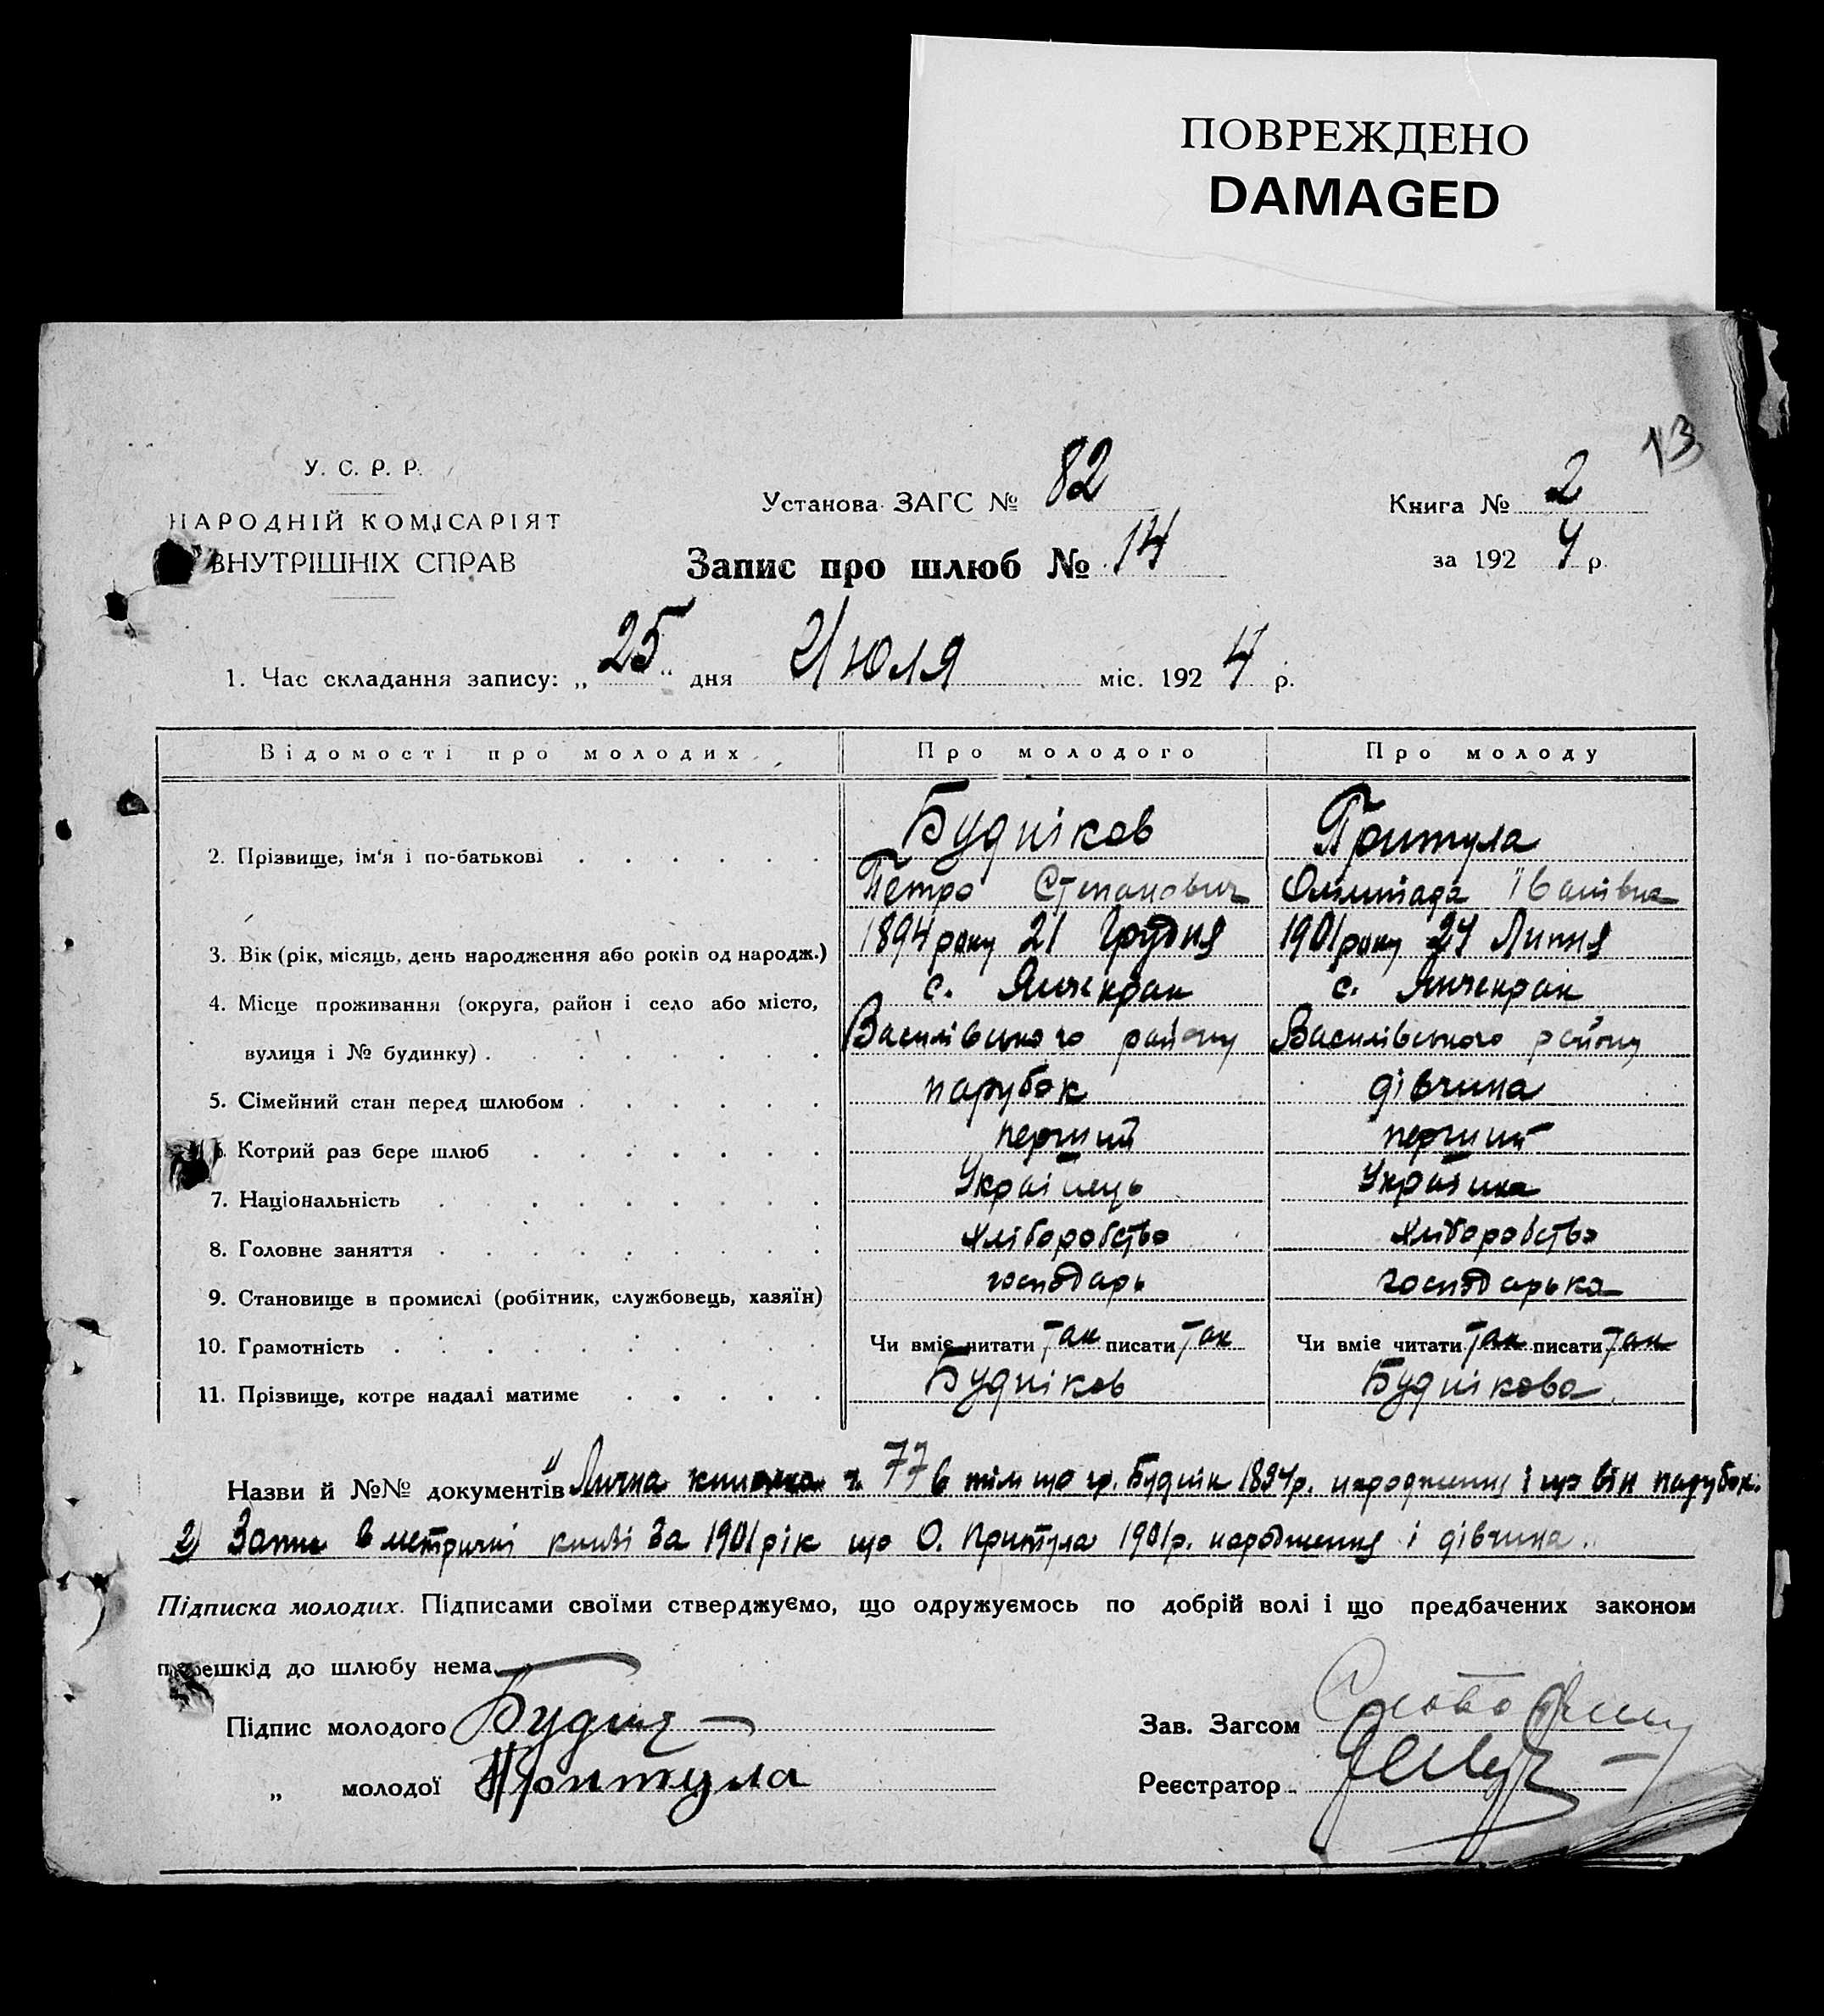 ПОВРЕЖДЕНО
DAMAGED
13
У. С. Р. Р.
НАРОДНІЙ КОМІСАРІЯТ
ВНУТРІШНІХ СПРАВ
Установа ЗАГС № 82
Запис про шлюб № 14
Книга № 2
за 1924 р.
1. Час складання запису: „25“ дня Июля міс. 1924 р.
Відомості про молодих Про молодого Про молоду
2. Прізвище, ім'я і по-батькові . . . . . . Будніков Притула
Петро Степанович Олімпіада Іванівна
3. Вік (рік, місяць, день народження або років од народж.) 1894 року 21 Грудня 1901 року 24 Липня
4. Місце проживання (округа, район і село або місто, с. Янчекрак с. Янчекрак
вулиця і № будинку) . . . . . . . Василівського району Василівського району
5. Сімейний стан перед шлюбом . . . . . . парубок дівчина
6. Котрий раз бере шлюб . . . . . . . перший перший
7. Національність . . . . . . . . Українець Українка
8. Головне заняття . . . . . . . . Хліборобство Хліборобство
9. Становище в промислі (робітник, службовець, хазяїн) господарь господарька
10. Грамотність . . . . . . . . . Чи вміє читати Так писати Так Чи вміє читати Так писати Так
11. Прізвище, котре надалі матиме . . . . . Будніков Буднікова
Назви й №№ документів Лична книжка 77 в тім що гр. Будник 1894р. народження і що він парубок.
2) Запис в метричні книзі за 1901 рік що О. Притула 1901 р. народження і дівчина.
Підписка молодих. Підписами своїми стверджуємо, що одружуємось по добрій волі і що предбачених законом
перешкід до шлюбу нема.
Підпис молодого
„ молодої Притула
Зав. Загсом
Реєстратор